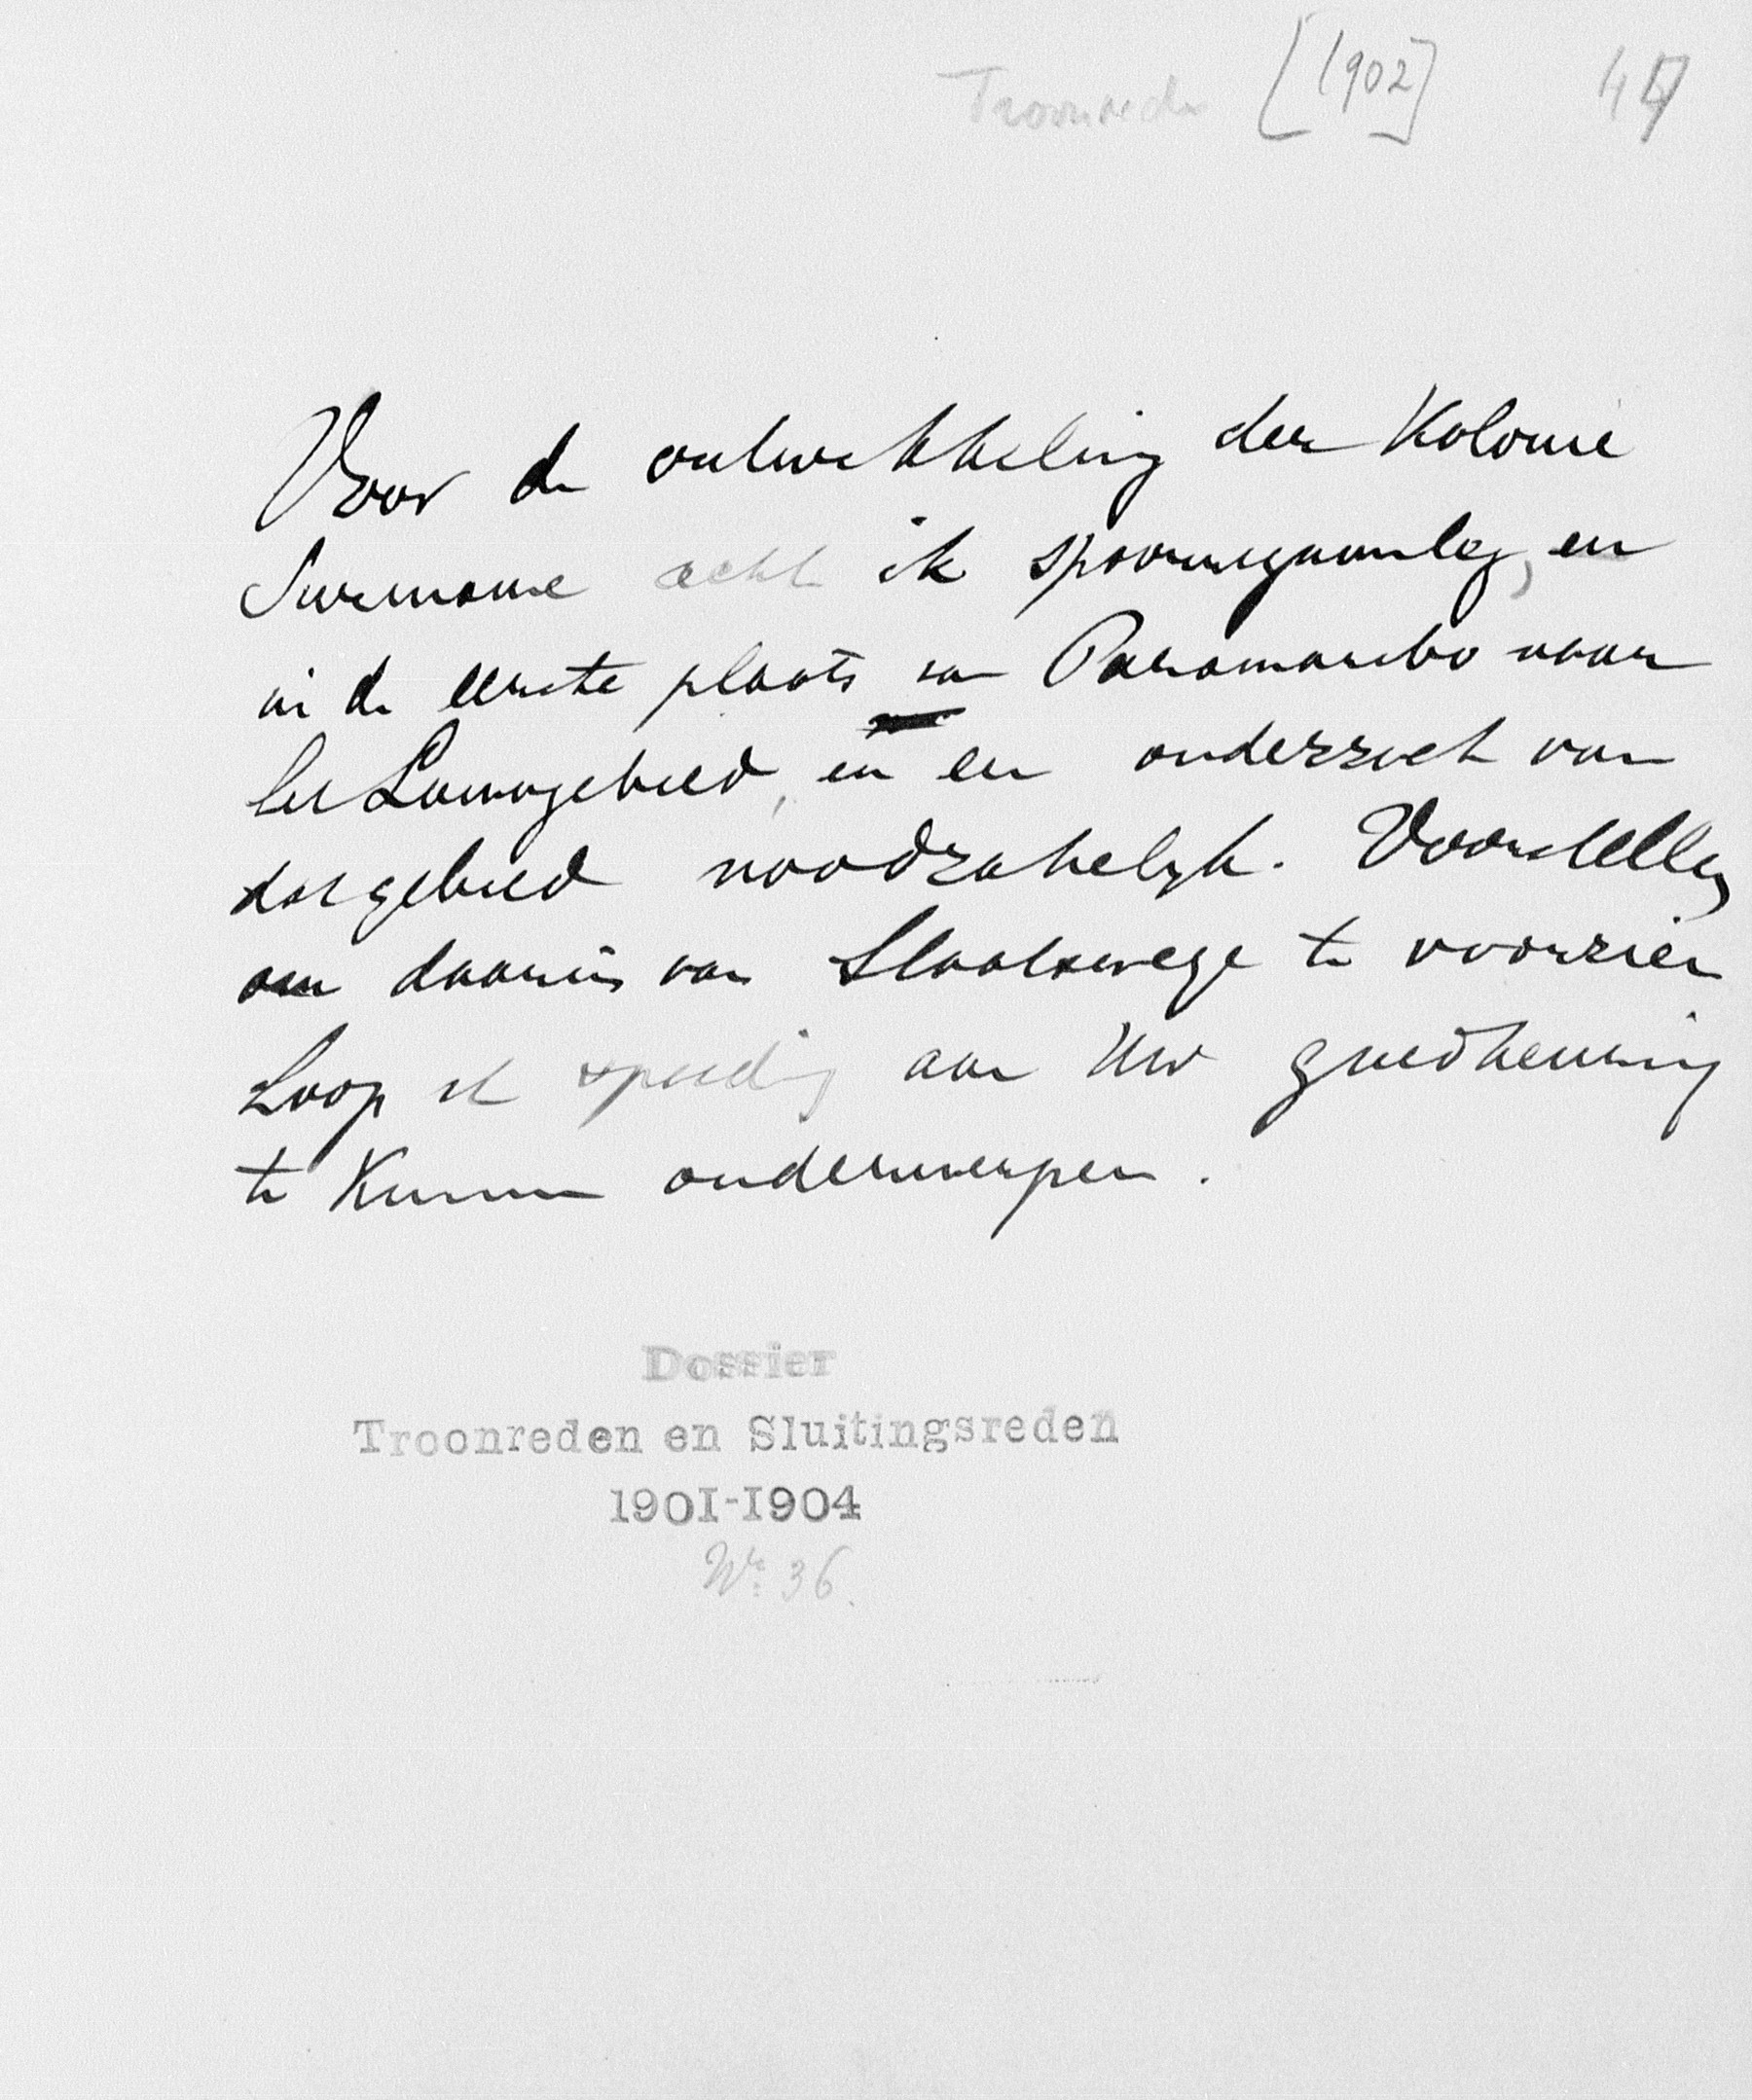 Troonrede [1902] 47
Voor de ontwikkeling der Kolonie
Suriname acht ik spoorwegaanleg, en
in de eerste plaats van Paramaribo naar
het Lawagebied, en een onderzoek van
dat gebied noodzakelijk. Voorstellen
om daarin van Staatswege te voorzien
hoop ik spoedig aan Uw goedkeuring
te kunnen onderwerpen.
Dossier
Troonreden en Sluitingsreden
1901-1904
Nr. 36.